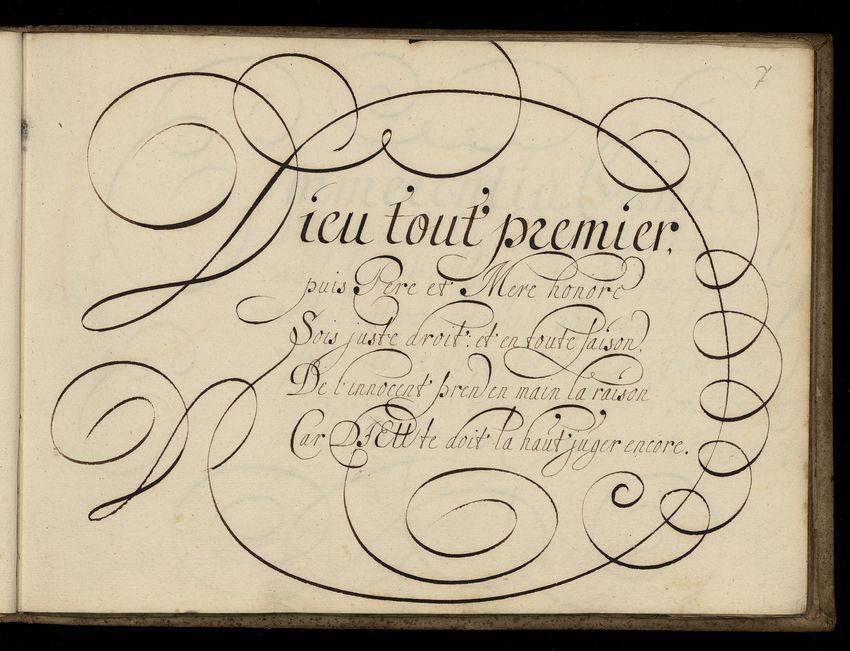 7
Dieu tout premier,
puis Pere et Mere honore
Sois juste droit: et en toute saison,
De l'innocent pren en main la raison
Car DIEU te doit la haut juger encore.